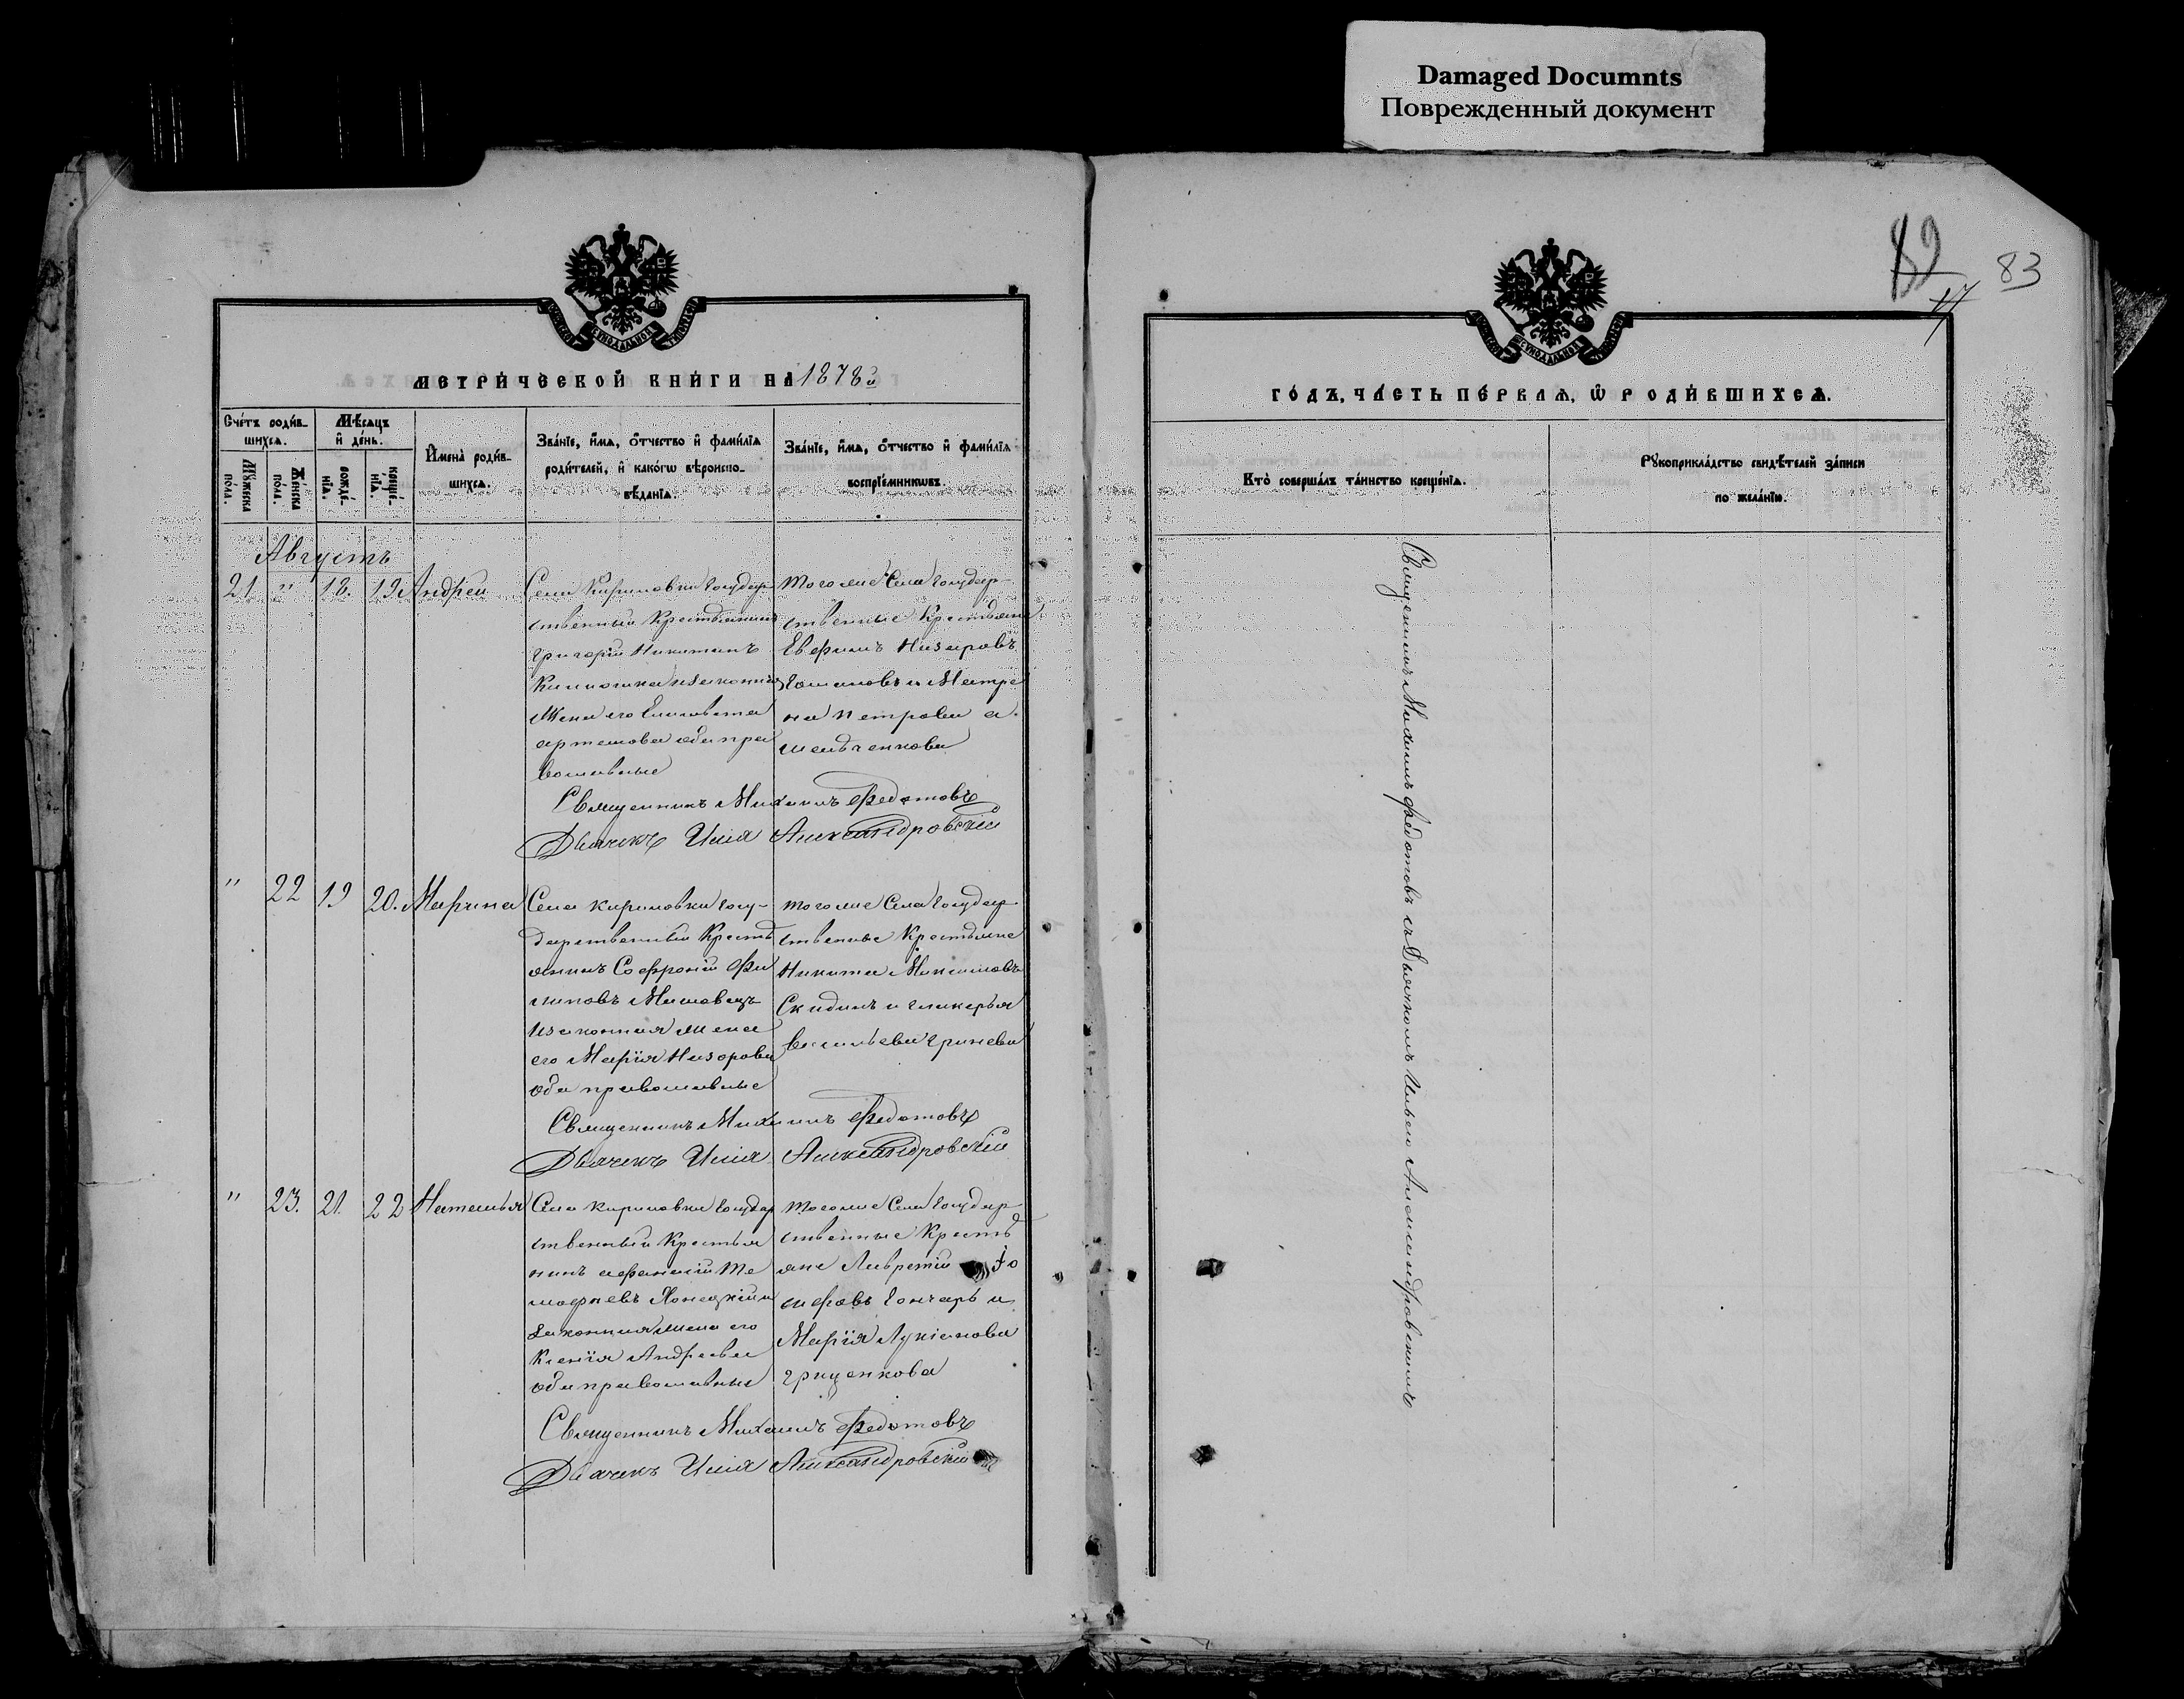 Damaged Documnts
Поврежденный документ
82
17
83
МЕТРИ́ЧЕСКОЙ КНИ́ГИ НА 1878й
Сче́тъ роди́в-
шихсѧ.
Мѣ́сѧцъ
и҆ де́нь.
И҆мена̀ роди́в-
шихсѧ.
Зва́нїе, и҆́мѧ, ѻ҆́тчество и҆ фами́лїѧ
роди́телей, и҆ како́гѡ вѣроиспо-
вѣ́данїѧ.
Зва́нїе, и҆́мѧ, ѻ҆́тчество и҆ фами́лїѧ
воспрїе́мникѡвъ.
Мꙋ́жеска
по́ла.
Же́нска
по́ла.
рожде́-
нїѧ.
креще́-
нїѧ.
Августъ
21 " 18. 19 Андрей
Села Кириловки Государ
ственный Крестьянинъ
Григорій Никитинъ
и законная
Жена его Елисавета
Артемова оба пра
вославные
тогоже Села Государ
ственные Крестьяне
Евфимъ Назаровъ
и Матре
на Петрова

Священникъ Михаилъ Федотовъ
Дьячекъ Илія Александровскій
" 22 19 20. Марина
Села Кириловки Госу-
дарственный Кресть
янинъ Софроній Фи
липовъ
и законная жена
его Марія Назарова
оба православные
тогоже Села Государ
ственные Крестьяне
Никита Максимовъ
Скидинъ и Гликерья
Васильева Гринева
Священникъ Михаилъ Федотовъ
Дьячекъ Илія Александровскій
" 23. 21. 22 Наталья
Села Кириловки Государ
ственный Крестья
нинъ Афанасій Ти
мофѣевъ Донецкій и
законная жена его
Ксенія Андреева
оба православные
тогоже Села Государ
ственные Кресть
яне Лаврентій Іо
сифовъ Гончаръ и
Марія Лукіанова
Гриценкова
Священникъ Михаилъ Федотовъ
Дьячекъ Илія Александровскій
ГО́ДЪ, ЧА́СТЬ ПЕ́РВАѦ, Ѡ҆ РОДИ́ВШИХСѦ.
Кто̀ соверша́лъ та́инство креще́нїѧ.
Рꙋкоприкла́дство свидѣ́телей за́писи
по жела́нїю.
Священникъ Михаилъ Федотовъ съ Дьячкомъ Ильею Александровскимъ